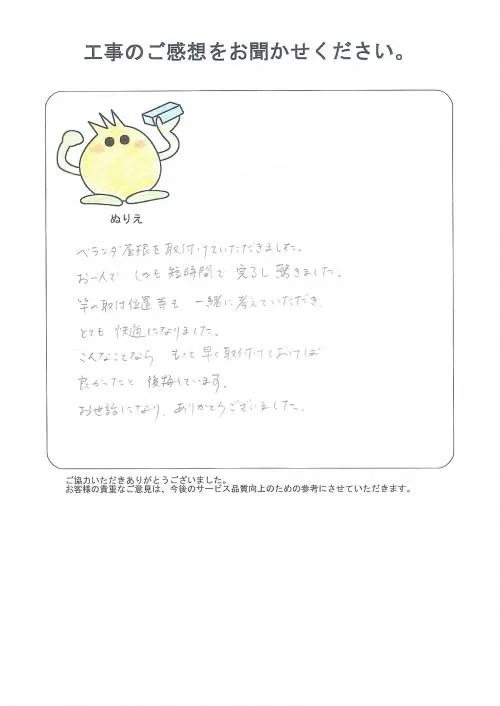 工事のご感想をお聞かせください。
ぬりえ
ベランダ屋根を取付けていただきました。
お一人で しかも短時間で 完了し 驚きました。
竿の取付位置等も 一緒に考えていただき、
とても 快適になりました。
こんなことなら もっと早く取付けておけば
良かったと 後悔しています。
お世話になり、ありがとうございました。
ご協力いただきありがとうございました。
お客様の貴重なご意見は、今後のサービス品質向上のための参考にさせていただきます。